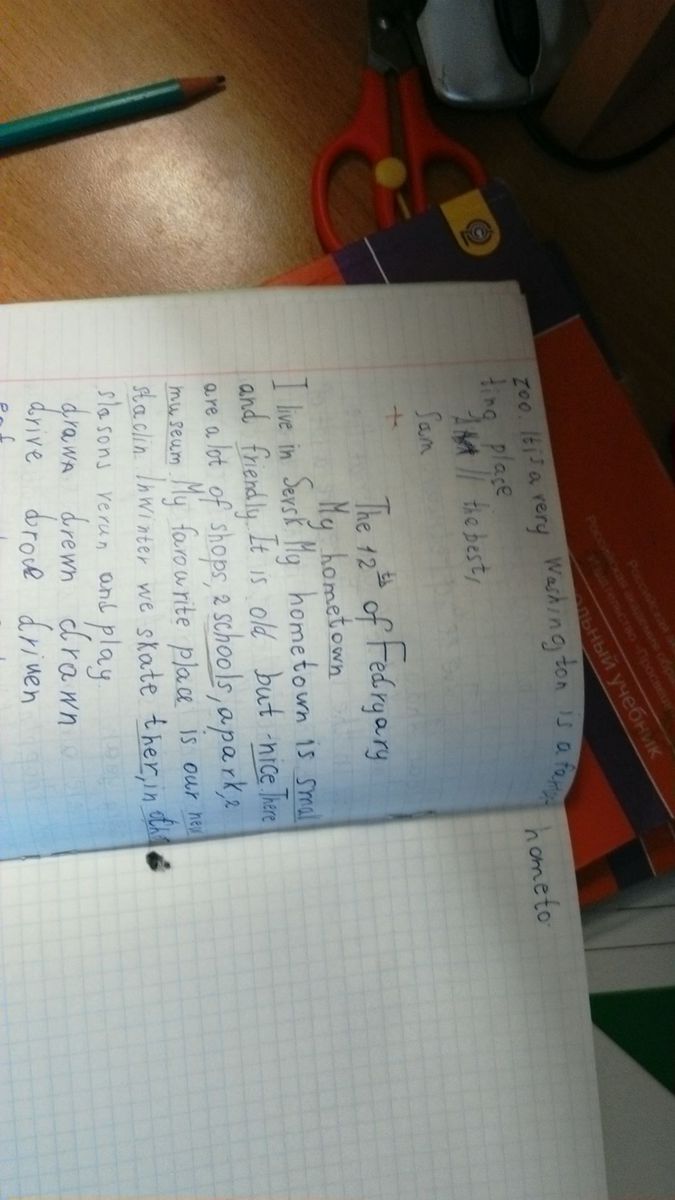 hometo
zoo. It is a very Washington is a
ting plase
All the best,
Sam
+
The 12th of Fedryary
My hometown
I live in Sevsk My hometown is smal
and friendly. It is old but nice. There
are a lot of shops, 2 schools, a park, 2
museum. My farourite place is our new
staclin. Inwinter we skate ther, in oth
stasons verun and play
drawn drewn drawn
drive drove driven
eat
альный учебник